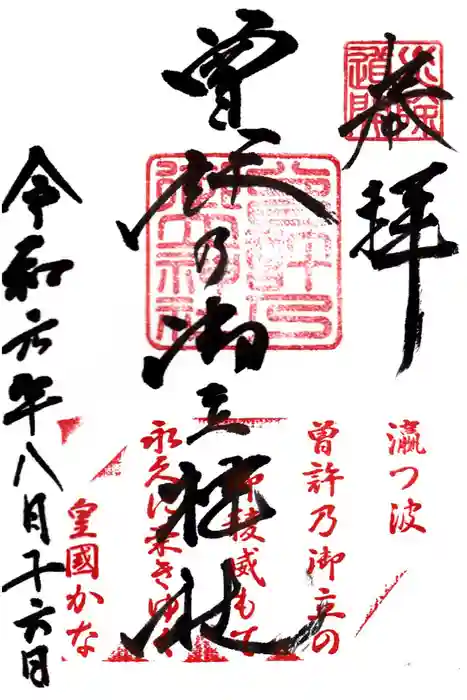 奉拝
曽許乃御立神社
令和六年八月十六日
瀛つ波
曽許乃御立の
御稜威もて
永久に栄きゆく
皇國かな